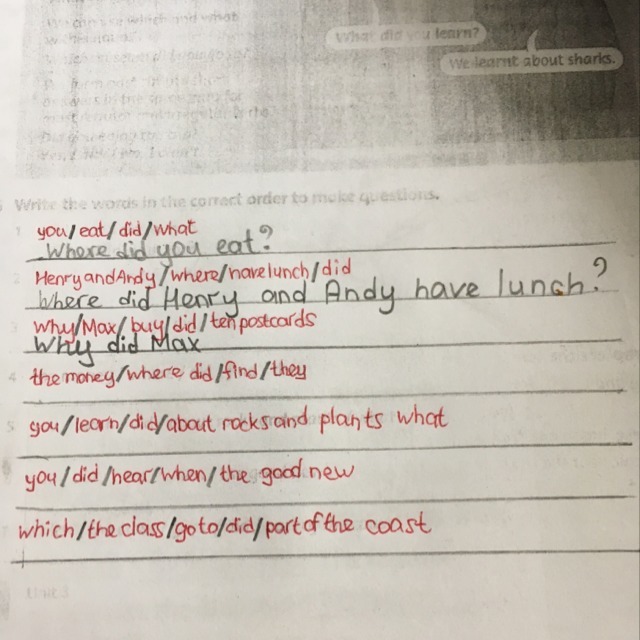 We can use which and what
What did you learn?
We learnt about sharks.
Write the words in the correct order to make questions.
1 you/eat/did/what
Where did you eat?
2 Henry and Andy/where/have lunch/did
Where did Henry and Andy have lunch?
3 why/Max/buy/did/ten postcards
Why did Max
4 the money/where did/find/they
5 you/learn/did/about rocks and plants what
you/did/hear/when/the good new
which/the class/go to/did/part of the coast
Unit 3